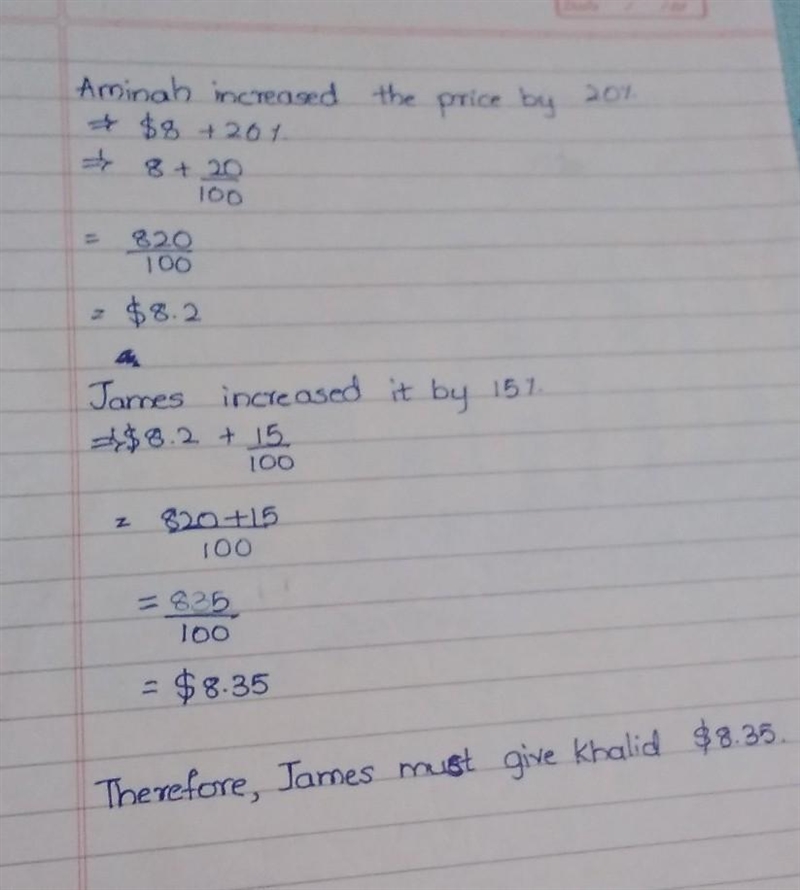 Aminah increased the price by 20%
⇒ $8 + 20%
⇒ 8 + 20/100
= 820/100
= $8.2
James increased it by 15%.
⇒ $8.2 + 15/100
= 820+15/100
= 835/100
= $8.35
Therefore, James must give Khalid $8.35.